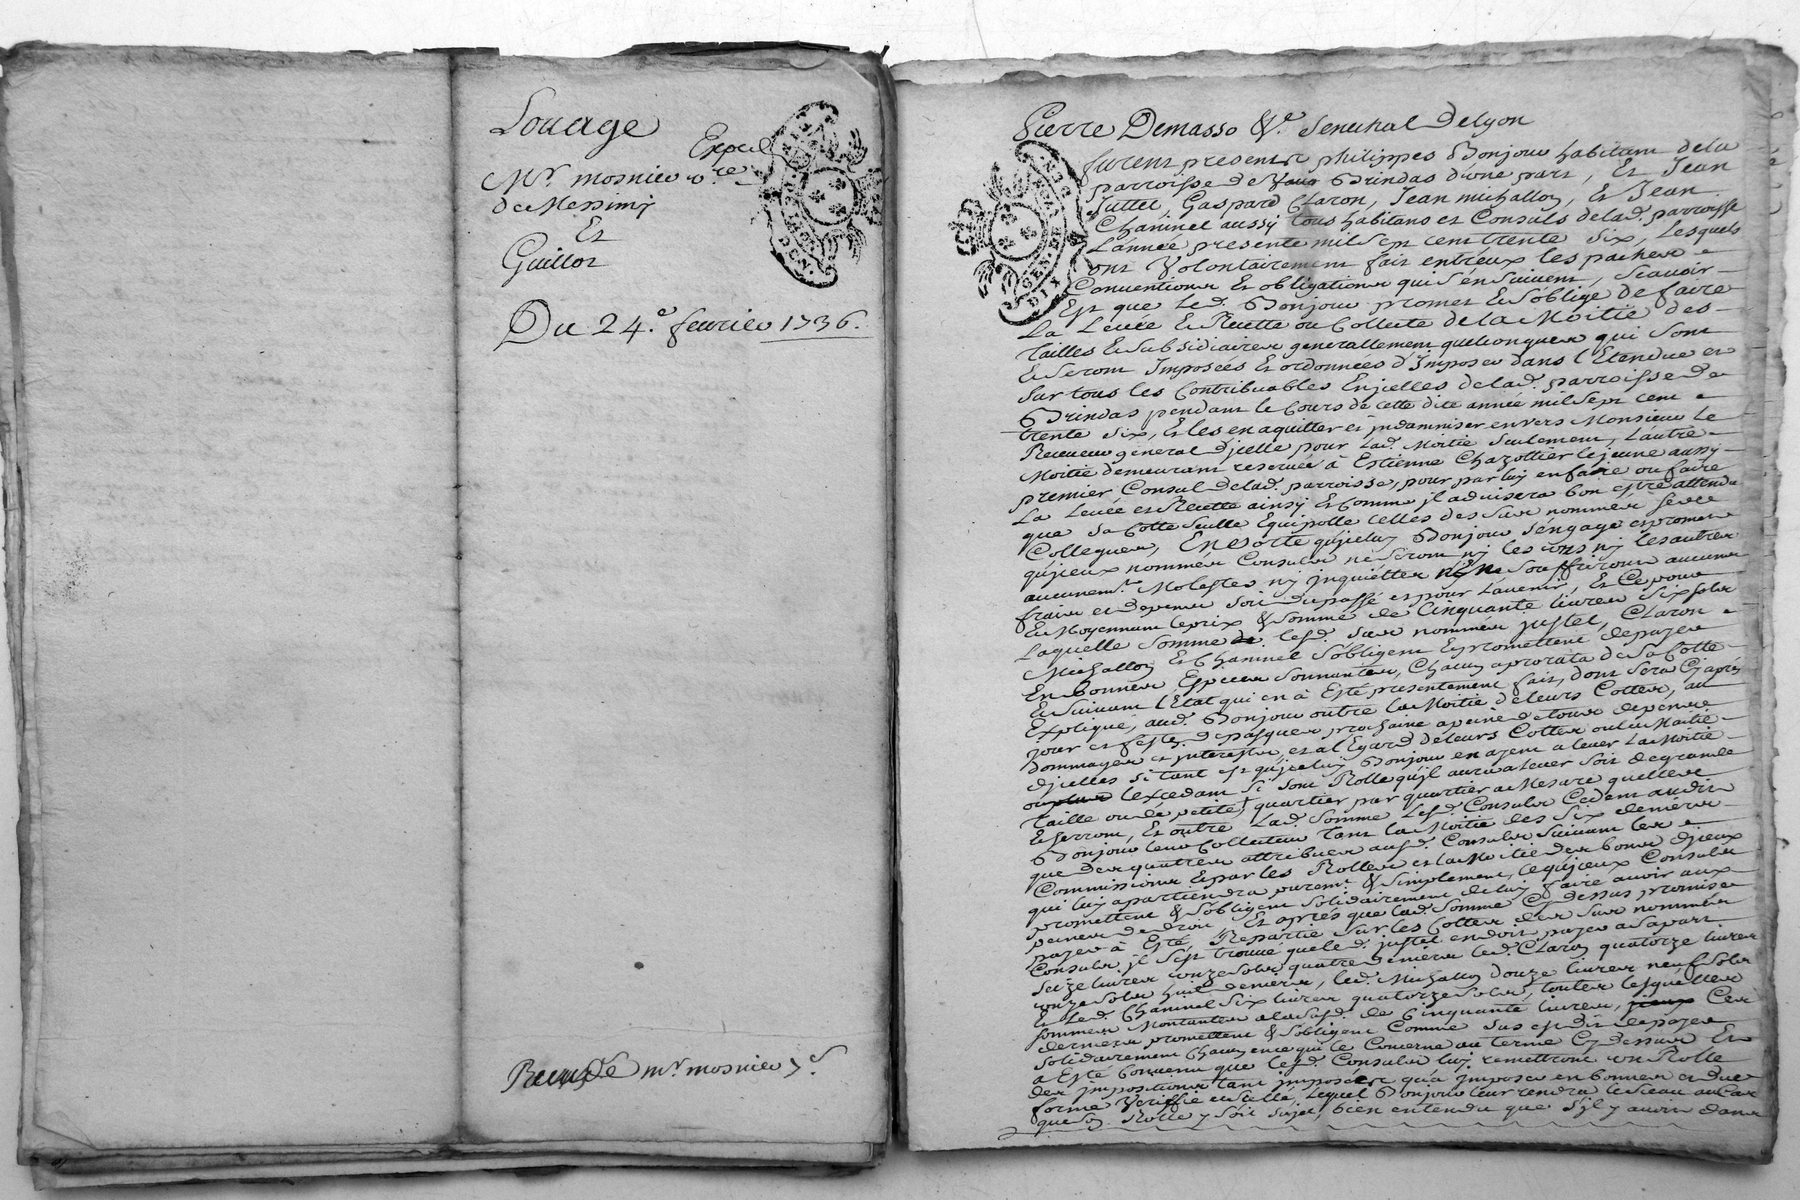 Louage
Exped
Mr. mosnier
de Messimy
Et
Guillot
Du 24.e fevrier 1736.
Receu de mr. mosnier
GEN. DE
DIX DEN.
Pierre Demasso &.e Senechal Delyon
furent presents philippes Bonjour habitant dela
parroisse de Brindas d'une part, Et Jean
Juttet, Gaspard Claron, Jean michallon, Et Jean
Chaninel aussy tous habitans et Consuls delad. parroisse
L'année presente mil sept cent trente six, Lesquels
ont Volontairement fait entreux les paches
Conventions et obligations qui s'ensuivent, Scavoir
Est que led. Bonjour promet & S'oblige de faire
La Levée & Recette ou Collecte de la Moitié des
Tailles & Subsidiaires generallement quelconques qui sont
& Seront Imposées Et ordonnées d'Imposer dans l'Etandue et
Sur tous les Contribuables Enjcelles delad. parroisse de
Brindas pendant le Cours de cette dite année mil sept cent
trente six, Et les en aquitter et jndamniser envers Monsieur le
Receveur general d'jcelle pour Lad. Moitié Seulement, L'autre
Moitié demeurant reservée à Estienne Chazottier le jeune aussy
premier Consul delad. parroisse, pour par luy en faire ou faire
La Levée et Recette ainsy Et comme jl advisera bon estre attendu
que sa Cotte Seulle Equipolle celles des sus nommés ses
Collegues, Ensorte qu'jceluy Bonjour s'engage et promet
qu'jceux nommés Consuls ne seront ny les uns ny les autres
aucunemt. Molestes ny jnquiettes n'En Souffriront aucuns
frais et depens soit du passé et pour L'avenir, Et Ce pour
Et Moyennant le prix & Somme de Cinquante livres six sols
Laquelle Somme lesd. sus nommés justet, Claron
Michallon Et Chaninel S'obligent Et promettent de payer
En bonnes Especes Sonnantes, Chacun a prorata de Sa Cotte
& Suivant l'Etat qui en à Esté presentement fait, dont sera Cj apres
Expliqué, aud. Bonjour outre la Moitié de leurs Cottes, au
jour et feste de pasques prochaine a peine de tous depens
dommages et jnterests, et al'Egard de leurs Cottes ou la Moitié
d'jcelles si tant est qu'jceluy Bonjour en ayent a lever La Moitié
l'excedant Si Sont Rolle qu'jl aura a lever soit de grande
Taille ou de petite quartier par quartier a Mesure quelles
Eserront, Et outre Lad. Somme Lesd. Consuls Cedent audit
Bonjour leur Collecteur tant la Moitié des Six deniers
que des quatres attribues ausd. Consuls Suivant les
Commissions & par les Rolles et la Moitié des bons d'jceux
qui luy apartiendra purement & simplement, lequ'jceux Consuls
promettent & S'obligent Solidairement de luy faire avoir aux
peines de droit, Et apres que lad. Somme Cy dessus promise
payer à Esté Repartie sur les Cottes des sus nommés
Consuls jl s'est trouvé que led. justet en doit payer a Sa part
Seize livres onze sols quatre deniers led. Claron quatorze livres
onze sols huit deniers, led. Michallon Douze livres neuf sols
& Led. Chaninel Six livres quatorze sols, toutes lesquelles
sommes Montantes a lad. de Cinquante livres, Ces
derniers promettent & S'obligent Comme sus est dit de payer
Solidairement Chacun en ce qui le Concerne au terme Cy dessus Et
a Esté Convenu que lesd. Consuls luy remettront un Rolle
des jmpositions tant jmposées qu'a jmposer en bonnes et dues
forme Verifié et scellé, Lequel Bonjour leur rendra
Rolle y soit sujet, bien entendu que s'jl y avoit dans